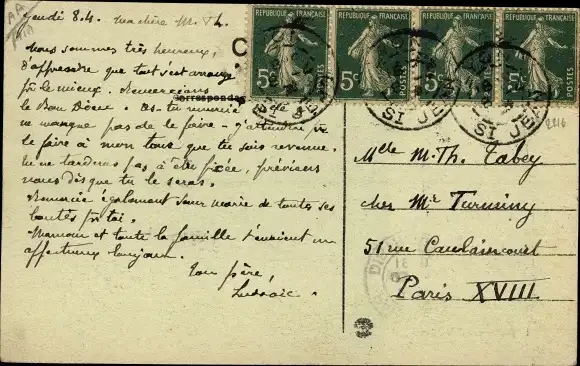 Jeudi 8.4. ma chère M. Th.
Nous sommes très heureux,
d'apprendre que tout s'est arrangé
pr le mieux. Remercions
le Bon Dieu. As-tu
ne manque pas de le faire - j'attendrai pr
le faire à mon tour que tu sois revenue.
tu ne tarderas pas à être fixée, préviens
nous dès que tu le seras.
Remercie également Sœur Marie de toutes ses
bontés pr toi.
Maman et toute la famille t'envoient un
affectueux bonjour.
Ton père,
Correspondance
RÉPUBLIQUE FRANÇAISE
5c
POSTES
RÉPUBLIQUE FRANÇAISE
5c
POSTES
RÉPUBLIQUE FRANÇAISE
5c
POSTES
RÉPUBLIQUE FRANÇAISE
5c
POSTES
Mlle M. Th. Cabey
chez Mr
51 rue Caulaincourt
Paris XVIII